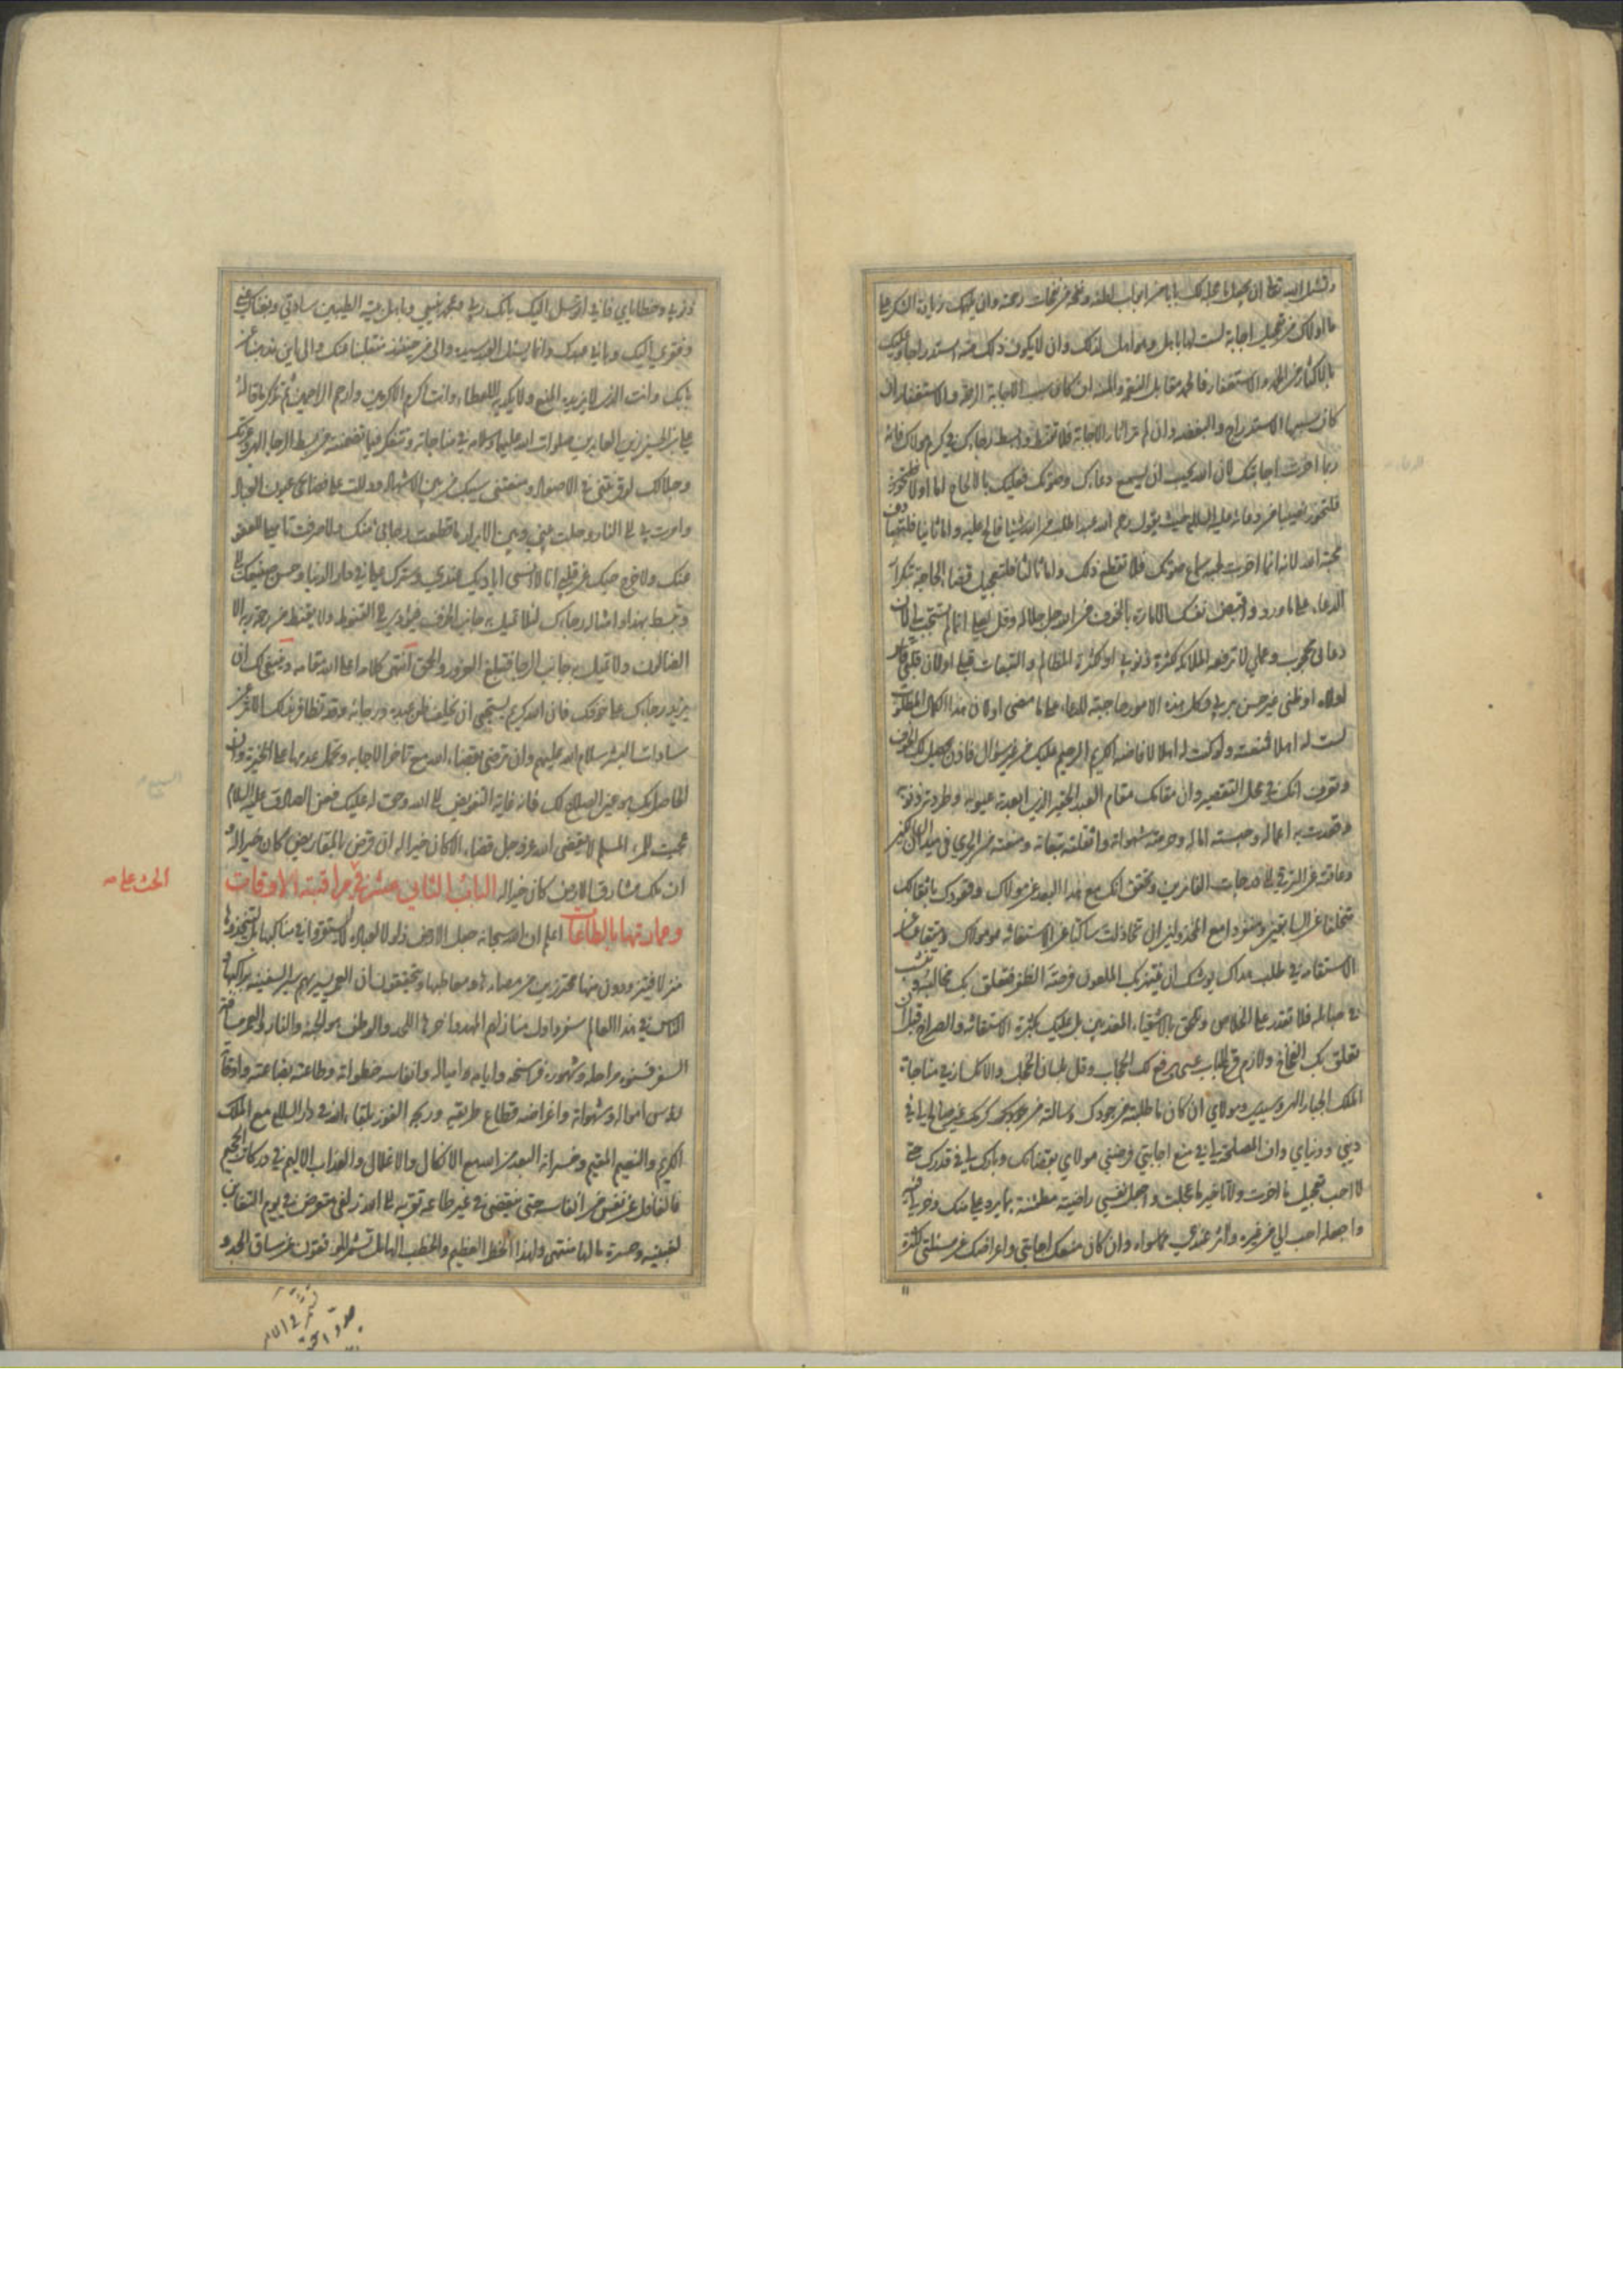 ولتسئل الله تعالى ان يجعل ما عجل لك بابا من ابواب لطفه ونفحة من نفحات رحمته وان يلهمك زيادة الشكر على
ما اولاك من تعجيل اجابة لست لها باهل وهو اهل لذلك وان لا يكون ذلك منه استدراجا وعليك
بالاكثار من الحمد والاستغفار فالحمد مقابل النعم والمنة ان كان سبب الاجابة الرحمة والاستغفار ان
كان سببها الاستدراج والبغضة وان لم تر اثار الاجابة فلا تقنط وابسط رجاك في كرم مولاك فانه
ربما اخرت اجابتك لان الله يحب ان يسمع دعاءك وصوتك فعليك بالالحاح اما اولا
فلتحوز نصيبا من دعائه عليه السلام حيث يقول رحم الله عبدا طلب من الله شيئا فالح عليه واما ثانيا
محبة الله لانه انما اخرت لحبه سماع صوتك فلا تقطع ذلك واما ثالثا فلتعجيل قضاء الحاجة بتكرار
الدعاء على ما ورد واقبض نفسك الامارة بالخوف من الله جل جلاله وقل لعلي انما لم يستجب لي لان
دعائي محجوب وعملي لا ترفعه الملائكة لكثرة ذنوبي او كثرة المظالم والتبعات قبلي او لان قلبي قاس
او لاه او ظني غير حسن بربي وكل هذه الامور حاجبة للدعاء على ما مضى او لان هذا الكمال المطلوب
لست له اهلا فمنعته ولو كنت له اهلا لافاضه الكريم الرحيم عليك من غير سؤال فاذن يحصل لك الخوف
وتعرف انك في محل التقصير وان مقامك مقام العبد الحقير الذي ابعدته عيوبه وطردته ذنوبه
وقعدت به اعماله وحبسته اماله وحرمته شهواته واثقلته تبعاته ومنعته من الجري في ميدان
وعاقته عن الترقي الى درجات الفائزين وتحقق انك مع هذا البعد عن مولاك وقعودك باثقالك
متخلفا عن السابقين ومنفردا مع المخذولين ان تخاذلت ساكتا عن الاستغاثة بمولاك ومتقاعدا عن
الاستقامة في طلب هداك يوشك ان ينتهز بك الملعون فرصة الظفر فتعلق بك مخالبه
في حبائله فلا تقدر على الخلاص وتلحق بالاشقياء المعذبين بل عليك بكثرة الاستغاثة والصراخ قبل ان
تعلق بك الفخاخ ولازم قرع الباب عسى يرفع لك الحجاب وقل بلسان الخجل والانكسار في مناجاة
الملك الجبار الهي وسيدي ومولاي ان كان ما طلبته من جودك وسالته من كرمك غير صالح لي في
ديني ودنياي وان المصلحة لي في منع اجابتي فرضني مولاي بقضائك وبارك لي في قدرك حتى
لا احب تعجيل ما اخرت ولا تاخير ما عجلت واجعل نفسي راضية مطمئنة بما يرد علي منك وخر لي فيه
واجعله احب الي من غيره واثر عندي مما سواه وان كان منعك اجابتي واعراضك عن مسئلتي لكثرة
ذنوبي وخطاياي فاني اتوسل اليك بانك ربي وبمحمد نبيي وباهل بيته الطيبين ساداتي وبغناك عني
وفقري اليك وباني عبدك وانما يسئل العبد سيده والى من حينئذ منقلبنا عنك والى اين مذهبنا عن
بابك وانت الذي لا يزيده المنع ولا يكديه العطاء وانت اكرم الاكرمين وارحم الراحمين ثم تذكر ما قاله
علي بن الحسين زين العابدين صلوات الله عليهما وسلامه في مناجاته وتتفكر فيما تضمنته من بسط الرجاء الهي وعزتك
وجلالك لو قرنتني في الاصفاد ومنعتني سيبك من بين الاشهاد ودللت على فضائحي عيون العباد
وامرت بي الى النار وحلت بيني وبين الابرار ما قطعت رجائي منك ولا صرفت تاميلي للعفو
عنك ولا خرج حبك عن قلبي انا لا انسى اياديك عندي وسترك علي في دار الدنيا وحسن صنيعك الي
وتبسط بهذا وامثاله رجاءك لئلا تميل به جانب الخوف فيؤدي الى القنوط ولا يقنط من رحمة ربه الا
الضالون ولا تميل به جانب الرجاء فتبلغ الغرور والحمق انتهى كلامه اعلى الله مقامه وينبغي لك ان
يزيد رجاءك على خوفك فان الله كريم يستحيي ان يخلف ظن عبده ورجائه وقد تظافر بذلك الاثر عن
سادات البشر سلام الله عليهم وان ترضى بقضاء الله مع تاخر الاجابة وتحمل عدمها على الخيرة وان
الحاصل لك هو عين الصلاح لك فانه غاية التفويض الى الله وحق له عليك فعن الصادق عليه السلام
عجبت للمرء المسلم لا يقضي الله عز وجل قضاء الا كان خيرا له ان قرض بالمقاريض كان خيرا له و
ان ملك مشارق الارض كان خيرا له الباب الثاني عشر في مراقبة الاوقات
وعمارتها بالطاعات اعلم ان الله سبحانه جعل الارض ذلولا لعباده لا ليستقروا في مناكبها بل ليتخذوها
منزلا فيتزودون منها محترزين من مصائدها ومعاطبها ويتحققون ان العمر يسير بهم سير السفينة براكبها و
الناس في هذا العالم سفر واول منازلهم المهد واخرها اللحد والوطن هو الجنة والنار والعمر مسافة
السفر فسنوه مراحله وشهوره فراسخه وايامه امياله وانفاسه خطواته وطاعته بضاعته واوقاته
رؤس امواله وشهواته واغراضه قطاع طريقه وربحه الفوز بلقاء الله في دار السلام مع الملك
الكريم والنعيم المقيم وخسرانه البعد من الله مع الانكال والاغلال والعذاب الاليم في دركات الجحيم
فالغافل عن نفس من انفاسه حتى ينقضي في غير طاعة تقربه الى الله زلفى متعرض في يوم التغابن
لغبينة وحسرة ما لها منتهى ولهذا الخطر العظيم والخطب الهائل تشمر الموفقون عن ساق الجد و
الحث على